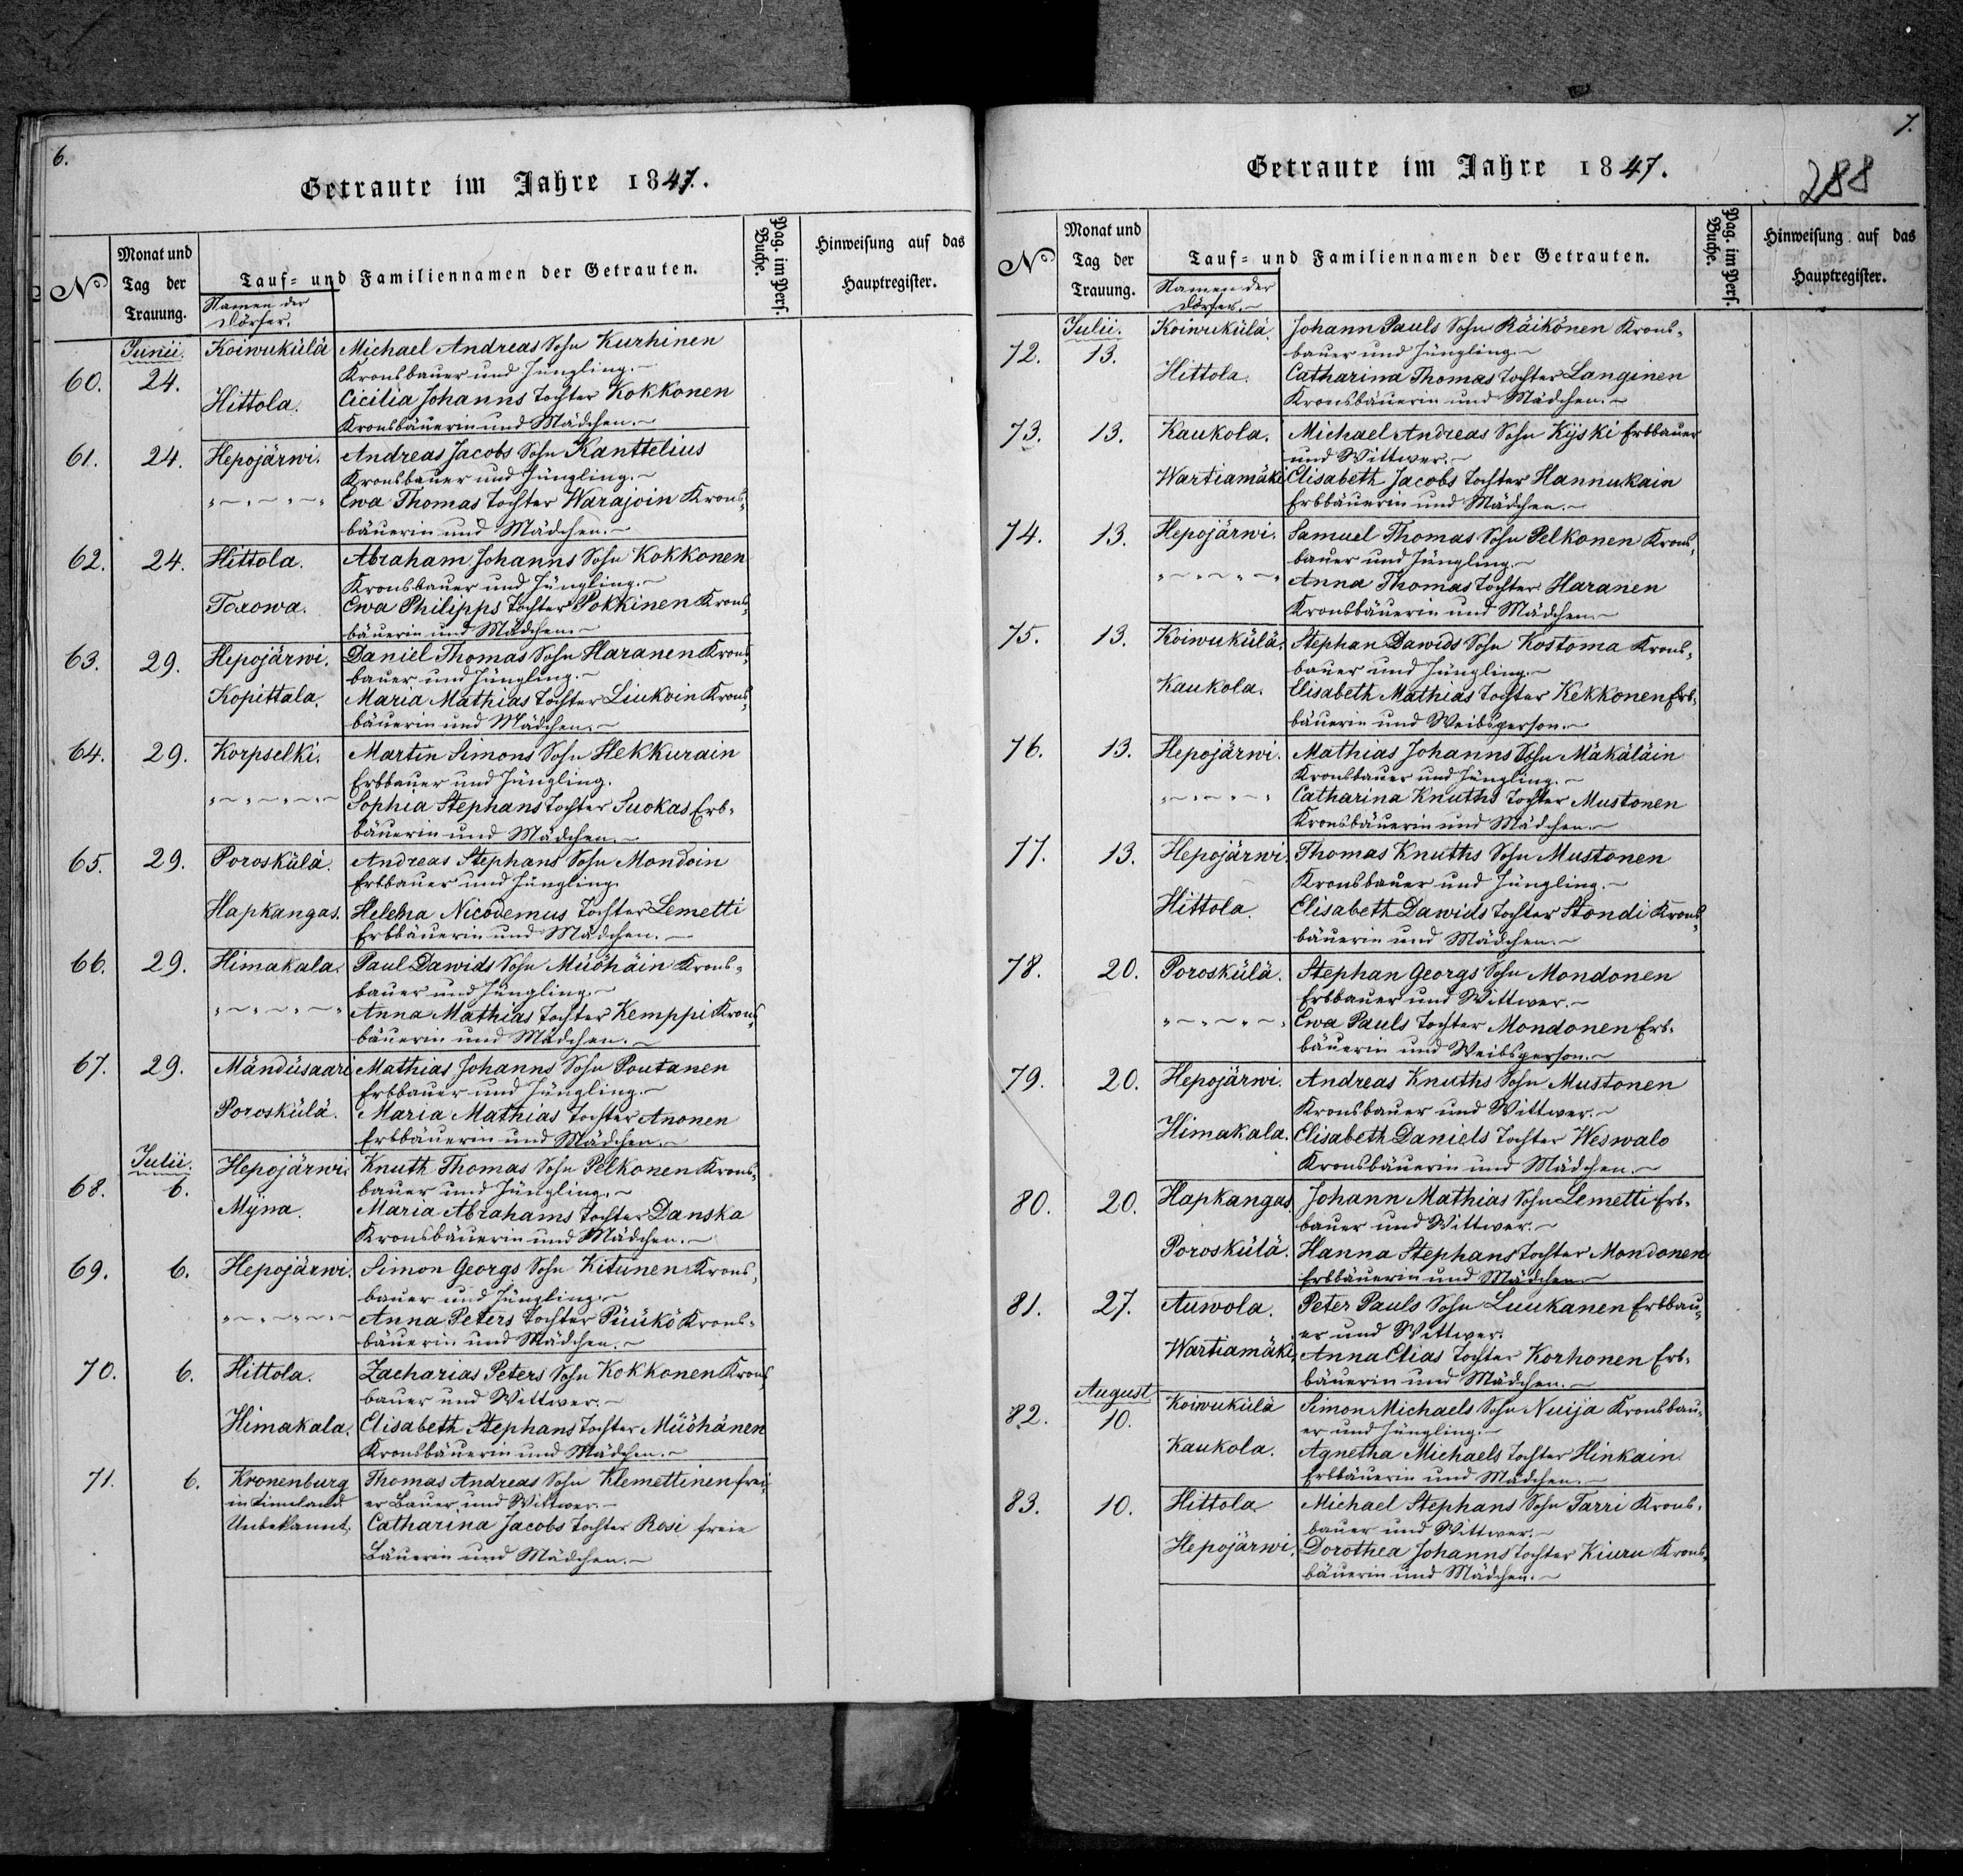 6.
Getraute im Jahre 1847.
No
Monat und Tag der Trauung.
Tauf- und Familiennamen der Getrauten.
Namen der Dörfer.
Pag. im Pers. Buche.
Hinweisung auf das Hauptregister.
Junii. Koiwukülä Michael Andreas Sohn Kurhinen
60. 24. Kronsbauer und Jüngling.~
Hittola. Cicilia Johanns Tochter Kokkonen
Kronsbäuerin und Mädchen.~
61. 24. Hepojärwi. Andreas Jacobs Sohn Kanttelius
Kronsbauer und Jüngling.~
"~"~"~" Ewa Thomas Tochter Warajoin Krons-
bäuerin und Mädchen.~
62. 24. Hittola. Abraham Johanns Sohn Kokkonen
Kronsbauer und Jüngling.~
Toxowa. Ewa Philipps Tochter Pokkinen Krons-
bäuerin und Mädchen.~
63. 29. Hepojärwi. Daniel Thomas Sohn Haranen Krons-
bauer und Jüngling.~
Kopittala. Maria Mathias Tochter Liukoin Krons-
bäuerin und Mädchen.~
64. 29. Korpselki. Martin Simons Sohn Hekkurain
Erbbauer und Jüngling.
"~"~"~"~ Sophia Stephans Tochter Suokas Erb-
bäuerin und Mädchen.~
65. 29. Poroskülä. Andreas Stephans Sohn Mondoin
Erbbauer und Jüngling
Hapkangas. Helena Nicodemus Tochter Lemetti
Erbbäuerin und Mädchen.~
66. 29. Himakala. Paul Dawids Sohn Müöhäin Krons-
bauer und Jüngling~
"~"~"~"~" Anna Mathias Tochter Kemppi Krons-
bäuerin und Mädchen.~
67. 29. Mändüsaari Mathias Johanns Sohn Poutanen
Erbbauer und Jüngling.~
Poroskülä. Maria Mathias Tochter Anonen
Erbbäuerin und Mädchen.~
Julii. Hepojärwi. Knuth Thomas Sohn Pelkonen Krons-
68. 6. bauer und Jüngling.~
Mÿna. Maria Abrahams Tochter Danska
Kronsbäuerin und Mädchen.~
69. 6. Hepojärwi. Simon Georgs Sohn Kitunen Krons-
bauer und Jüngling~
"~"~"~"~ Anna Peters Tochter Püükö Krons-
bäuerin und Mädchen.~
70. 6. Hittola. Zacharias Peters Sohn Kokkonen Krons-
bauer und Wittwer.~
Himakala. Elisabeth Stephans Tochter Müöhänen
Kronsbäuerin und Mädchen.~
71. 6. Kronenburg Thomas Andreas Sohn Klemettinen frei-
in Finnland er Bauer und Wittwer.~
Unbekannt. Catharina Jacobs Tochter Rosi freie
Bäuerin und Mädchen.~
7.
288
Getraute im Jahre 1847.
No
Monat und Tag der Trauung.
Tauf- und Familiennamen der Getrauten.
Namen der Dörfer.~
Pag. im Pers. Buche.
Hinweisung auf das Hauptregister.
Julii. Koiwukülä. Johann Pauls Sohn Räikönen Krons-
72. 13. bauer und Jüngling~
Hittola. Catharina Thomas Tochter Langinen
Kronsbäuerin und Mädchen.~
73. 13. Kaukola. Michael Andreas Sohn Kijski Erbbauer
und Wittwer.~
Wartiamäki Elisabeth Jacobs Tochter Hannukain
Erbbäuerin und Mädchen.~
74. 13. Hepojärwi. Samuel Thomas Sohn Pelkonen Krons-
bauer und Jüngling.~
"~"~"~" Anna Thomas Tochter Haranen
Kronsbäuerin und Mädchen~
75. 13. Koiwukülä. Stephan Dawids Sohn Kostoma Krons-
bauer und Jüngling.~
Kaukola. Elisabeth Mathias Tochter Kekkonen Erb-
bäuerin und Weibsperson.~
76. 13. Hepojärwi. Mathias Johanns Sohn Mäkäläin
Kronsbauer und Jüngling.~
"~"~"~" Catharina Knuths Tochter Mustonen
Kronsbäuerin und Mädchen.~
77. 13. Hepojärwi. Thomas Knuths Sohn Mustonen
Kronsbauer und Jüngling.~
Hittola. Elisabeth Dawids Tochter Stondi Krons-
bäuerin und Mädchen.~
78. 20. Poroskülä. Stephan Georgs Sohn Mondonen
Erbbauer und Wittwer.~
"~"~"~"~" Ewa Pauls Tochter Mondonen Erb-
bäuerin und Weibsperson.~
79. 20. Hepojärwi. Andreas Knuths Sohn Mustonen
Kronsbauer und Wittwer.~
Himakala. Elisabeth Daniels Tochter Weswalo
Kronsbäuerin und Mädchen.~
80. 20. Hapkangas. Johann Mathias Sohn Lemetti Erb-
bauer und Wittwer.~
Poroskülä. Hanna Stephans Tochter Mondonen
Erbbäuerin und Mädchen~
81. 27. Auwola. Peter Pauls Sohn Luukanen Erbbau-
er und Wittwer.
Wartiamäki, Anna Elias Tochter Korhonen Erb-
bäuerin und Mädchen.~
August Koiwukülä Simon Michaels Sohn Nuija Kronsbau-
82. 10. er und Jüngling.~
Kaukola. Agnetha Michaels Tochter Hinkain
Erbbäuerin und Mädchen.~
83. 10. Hittola Michael Stephans Sohn Tarri Krons-
bauer und Wittwer.~
Hepojärwi, Dorothea Johanns Tochter Kiuru Krons-
bäuerin und Mädchen.~